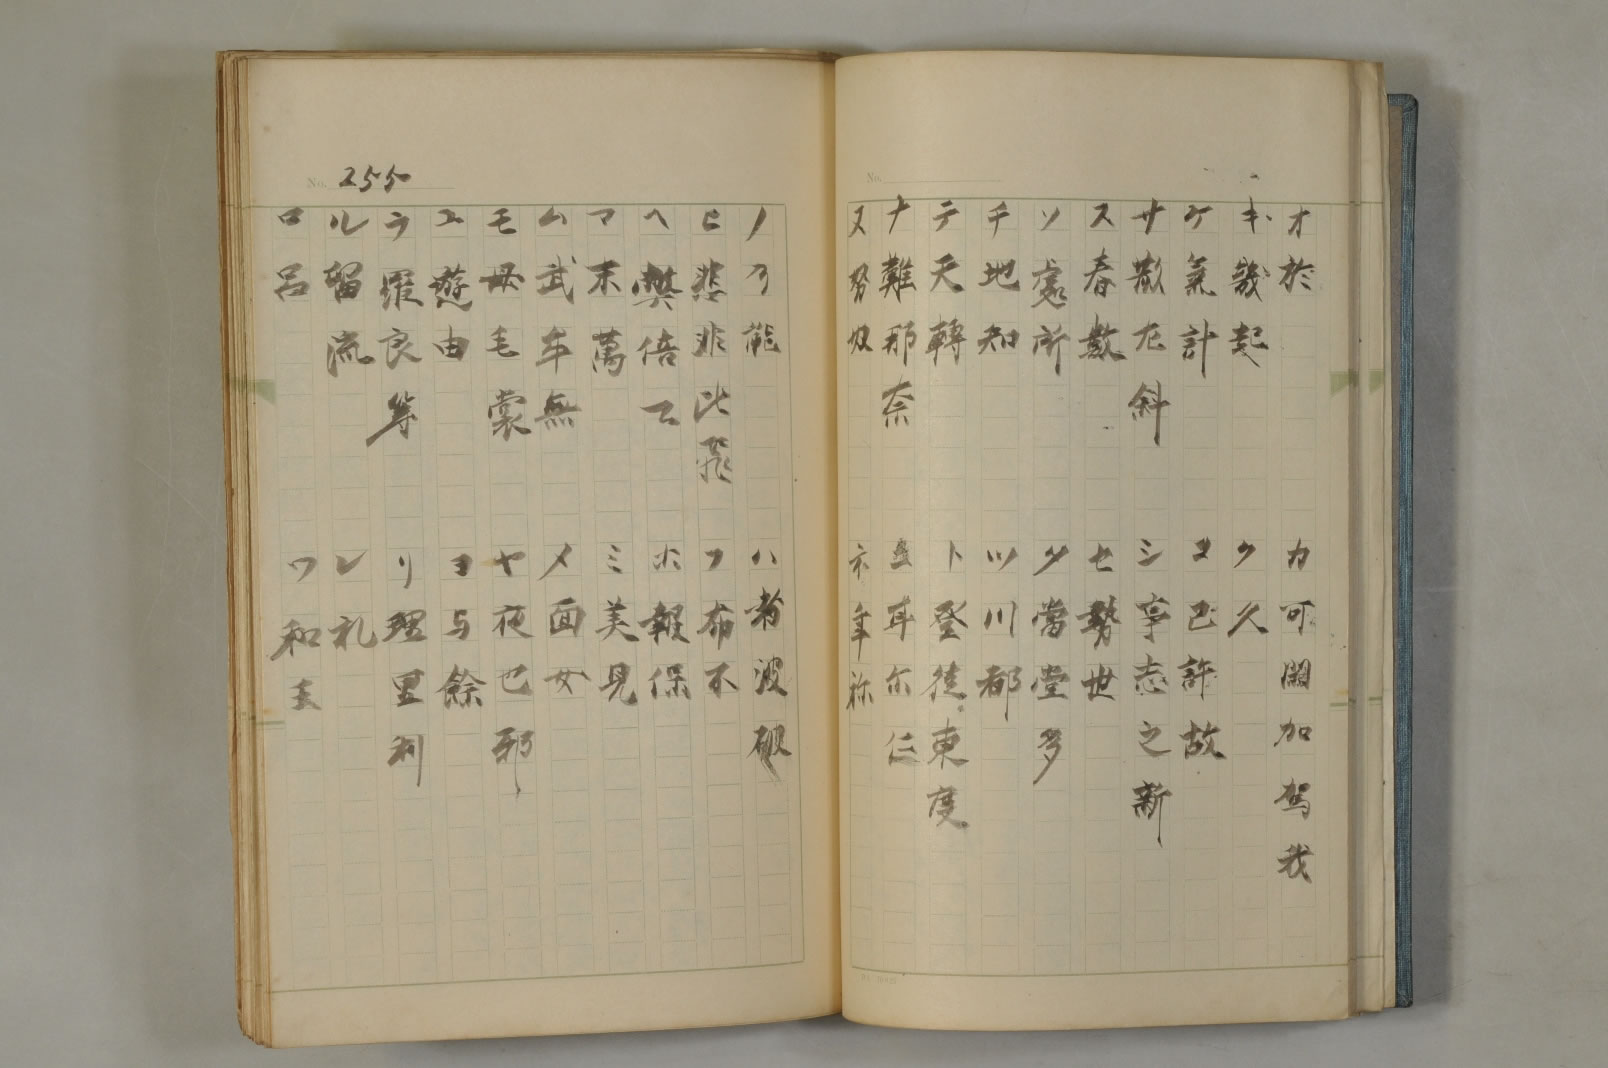 オ 於
カ 可 閑 加 駕 我
キ 幾 起
ク 久
ケ 氣 計
コ 己 許 故
サ 散 左 斜
シ 事 志 之 新
ス 春 数
セ 勢 世
ソ 處 所
タ 當 堂 多
チ 地 知
ツ 川 都
テ 天 轉
ト 登 徒 東 度
ナ 難 那 奈
耳 尓 仁
ヌ 努 奴
ネ 年 祢
No.
No. 255
ノ 乃 能
ハ 者 波 破
ヒ 悲 非 比 飛
フ 布 不
ヘ 弊 倍
ホ 報 保
マ 末 萬
ミ 美 見
ム 武 牟 無
メ 面 女
モ 母 毛 裳
ヤ 夜 也 邪
ユ 遊 由
ヨ 与 餘
ラ 羅 良 等
リ 理 里 利
ル 留 流
レ 礼
ロ 呂
ワ 和